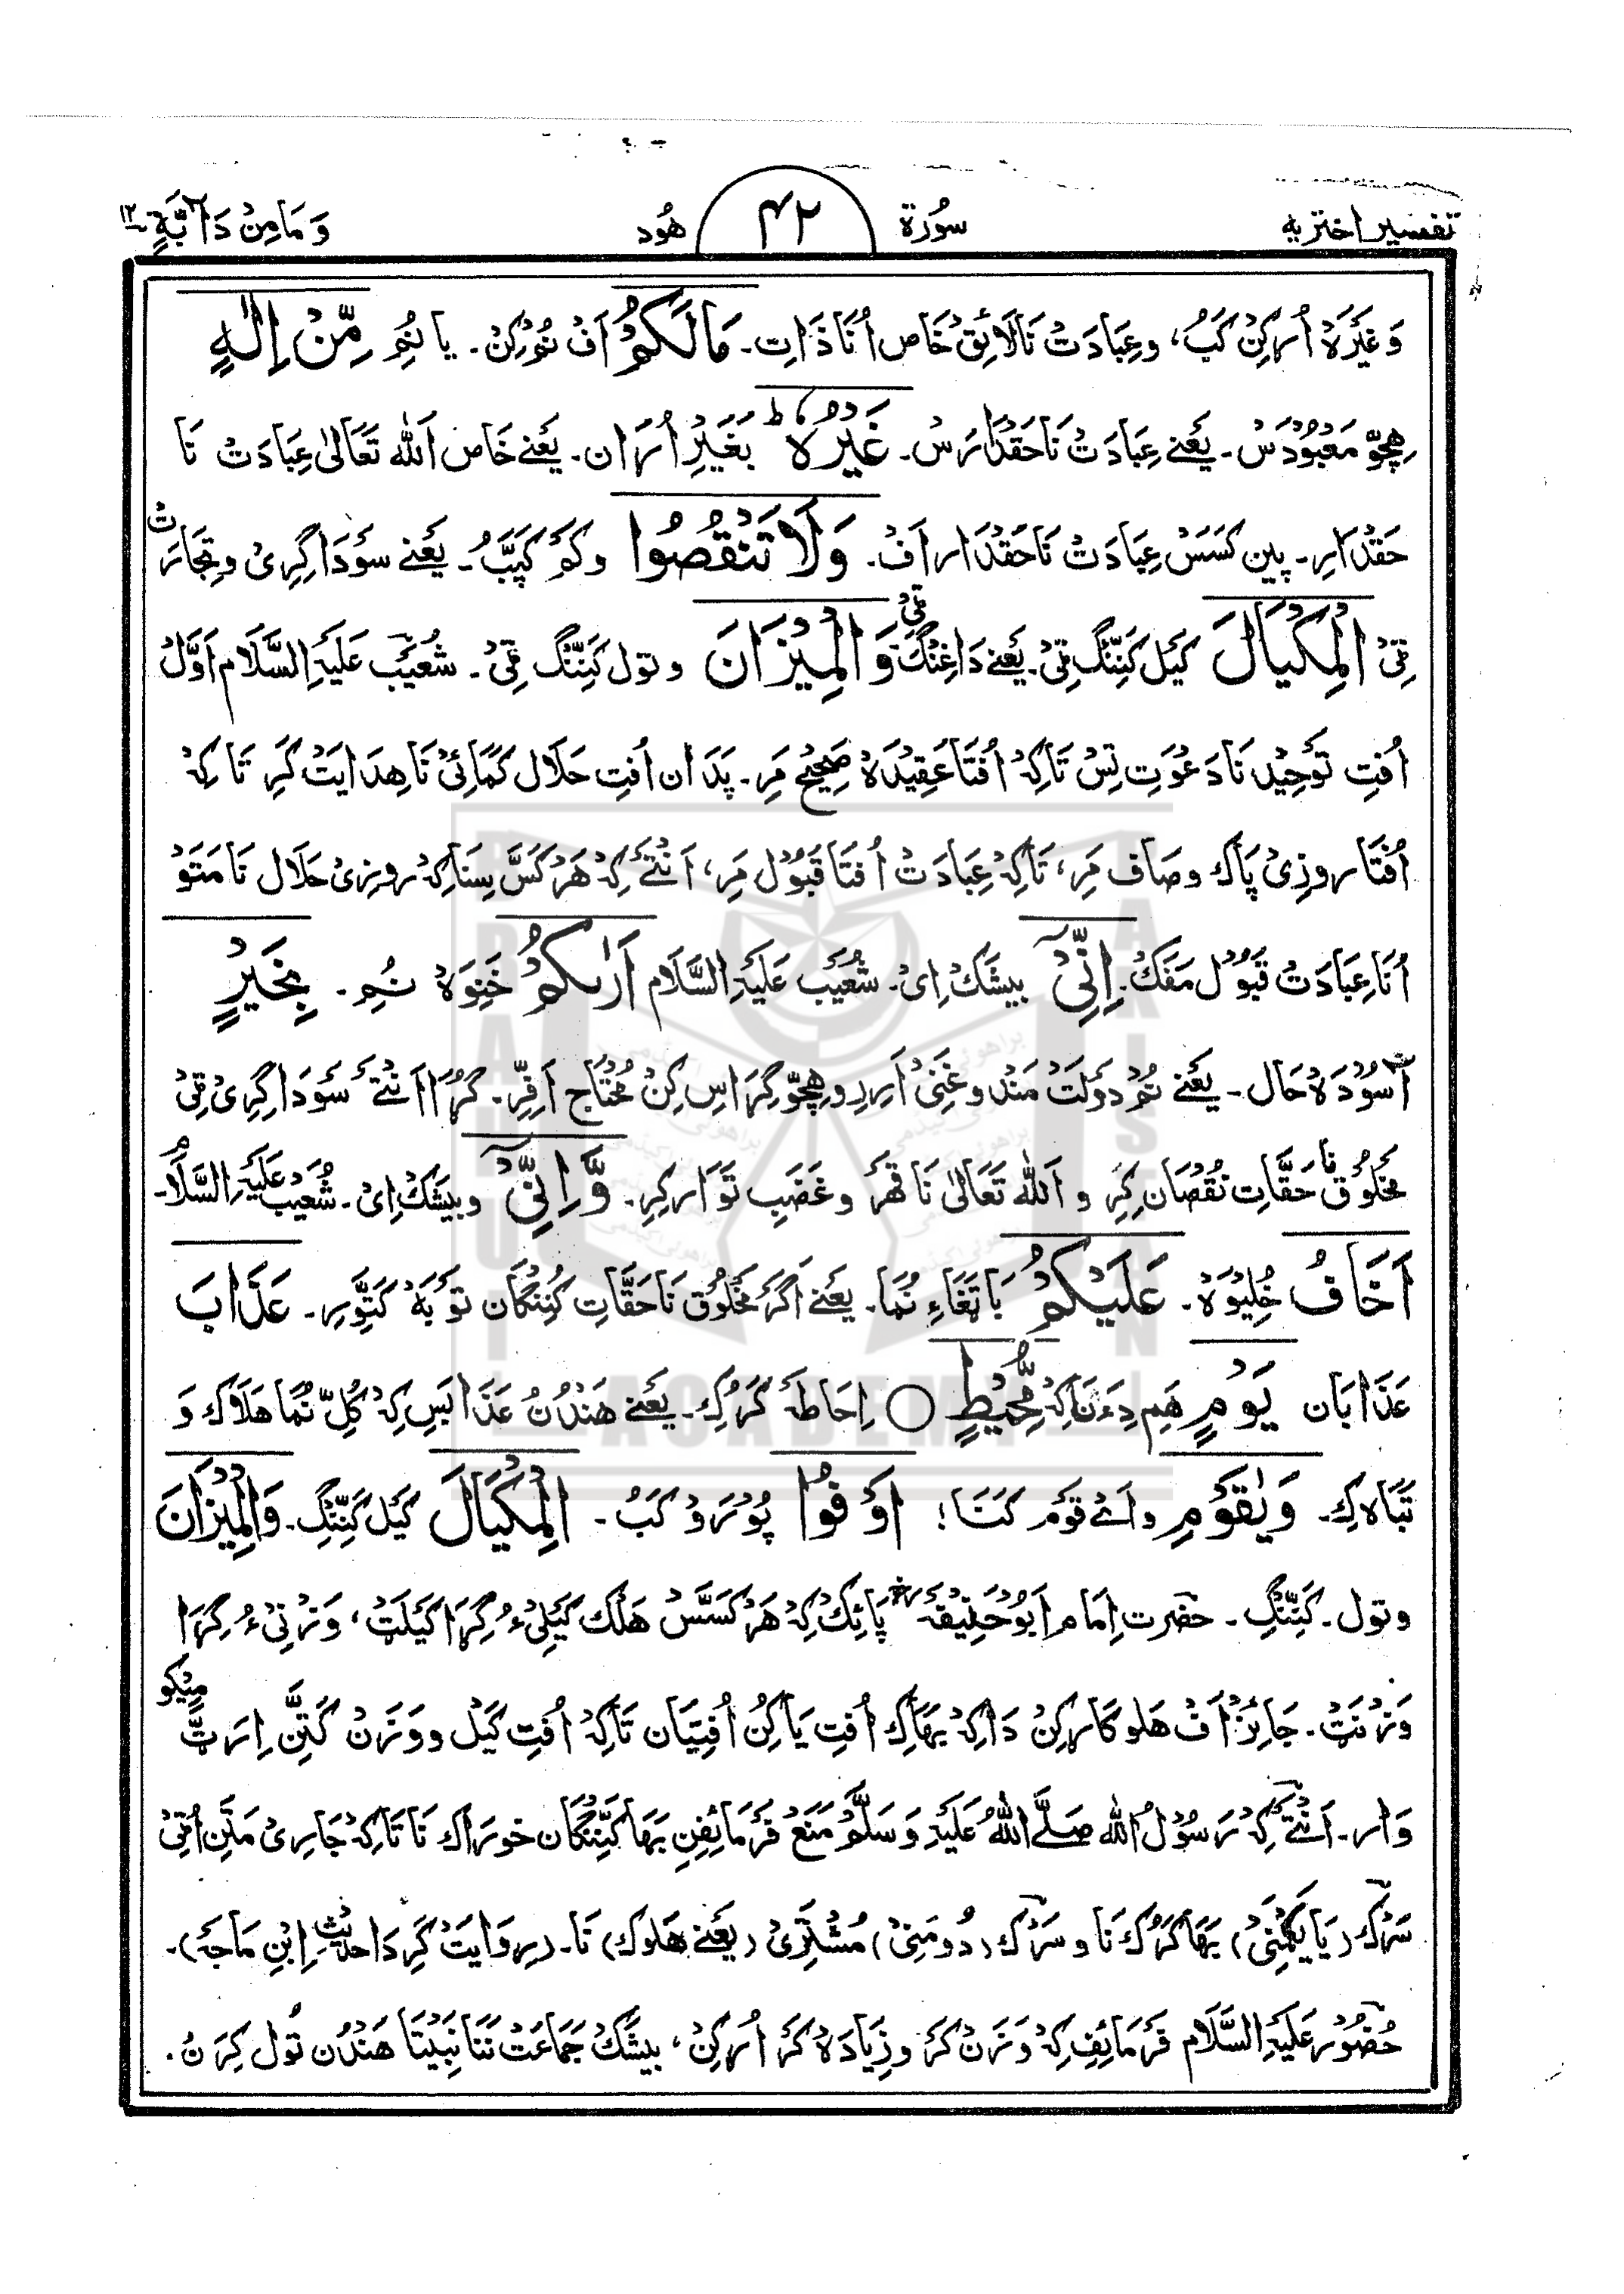 تفسیر اختریه سُورۃ ۴۲ هُود وَمَامِنْ دَآبَّةٍ ۱۲
وَغَیْرَہْ اُرکِنْ کَبُ، وعِبَادَتْ نَالَائِقْ خَاص اُنَا ذَاتِ۔ مَالَکُمْ اَفْ نُمْکِنْ۔ یا نُمِ مِّنْ اِلٰهٍ
هِچّوْ مَعْبُوْدَسْ۔ یَعْنے عِبَادَتْ نَا حَقْدَارَسْ۔ غَیْرُہٗ ط بَغَیْرِ اُرَان۔ یَعْنے خَاص اَللّٰہ تَعَالٰی عِبَادَتْ نَا
حَقْدَارِ۔ پین کَسَسْ عِبَادَتْ نَا حَقْدَار اَفْ۔ وَلَا تَنْقُصُوا وکَم کَپَّبُ۔ یَعْنے سَوْدَاگِرِیْ وتِجَارَتْ
ٹِیْ الْمِکْیَالَ کَیْل کَنِّنْگ ٹِیْ۔ یَعْنے دَاغِنْگ ٹِیْ وَالْمِیْزَانَ وتول کَنِّنْگ ٹِیْ۔ شُعَیْب عَلَیْہِ السَّلَام اَوَّلْ
اُفْتِ تَوْحِیْد نَا دَعْوَت تِسْ تَاکِہْ اُفْتَا عَقِیْدَہْ صَحِیْح مَرِ۔ پَدَان اُفْتِ حَلَال کَمَائِیْ نَا هِدَایَتْ کَرِ تَاکِہْ
اُفْتَا روزِیْ پَاک وصَاف مَرِ، تَاکِہْ عِبَادَتْ اُفْتَا قَبُوْل مَرِ، اَنْتَے کِہْ هَرْکَسَّ سِنَاکِہْ روزِیْ حَلَال نَا مَتَوْ
اُنَا عِبَادَتْ قَبُوْل مَفَکْ۔ اِنِّیْٓ بیشَکْ اِیْ۔ شُعَیْب عَلَیْہِ السَّلَام اَرٰىکُمْ خَنِوَہْ نُمِ۔ بِخَیْرٍ
آسُوْدَہْ حَال۔ یَعْنے نُمْ دَوْلَتْ مَنْد وغَنِیْ اَرِرِ وهِچّوْ گِرَاسِ کِنْ مُحْتَاج اَفِرِّ۔ گُڑَا اَنْتَے سَوْدَاگِرِیْ ٹِیْ
مَخْلُوْق نَا حَقَّاتِ نُقْصَان کِرِ و اَللّٰہ تَعَالٰی نَا قَهْر وغَضَبِ تَوَار کِرِ۔ وَّاِنِّیْٓ وبیشَکْ اِیْ۔ شُعَیْب عَلَیْہِ السَّلَام۔
اَخَافُ خُلِیْوَہْ۔ عَلَیْکُمْ بَاتَغَاءِ نُمَا۔ یَعْنے اَگَرْ مَخْلُوْق نَا حَقَّاتِ کُنِنْگَان تَوْبَہْ کَتَوِرِ۔ عَذَابَ
عَذَابَان یَوْمٍ هَمِ دِءْ نَاکِہْ مُّحِیْطٍ ◯ اِحَاطَہ کَرُکِ۔ یَعْنے هَنْدُنْ عَذَابَسِ کِہْ کُلِّ نُمَا هَلَاک وَ
تَبَاہ کِ۔ وَیٰقَوْمِ واَے قَوْم کَنَا! اَوْفُوا پُوْرَوْ کَبُ۔ الْمِکْیَالَ کَیْل کَنِّنْگِ۔ وَالْمِیْزَانَ
وتول۔ کَنِّنْگِ۔ حضرت اِمَام اَبُوْحَنِیْفَہ پَائِکْ کِہْ هَرْکَسَّسْ هَلْک کَیْلِیْ ءُ گِرَا کَیْلَتْ، وَزْنِیْ ءُ گِرَا
وَزْنَتْ۔ جَائِزْ اَفْ هَلوکَارکِنْ دَاکِہْ بَهَاکِ اُفْتِ یَا کُنْ اُفْتِیَان تَاکِہْ اُفْتِ کَیْل ووَزَنْ کَتَّنِ اِرَٹْ مِیْکو
وَار۔ اَنْتَے کِہْ رَسُوْلُ اللّٰہ صَلَّی اللّٰہُ عَلَیْہِ وَسَلَّمْ مَنَع فَرْمَائِفِنِ بَهَا کَنِّنْگَان خوراک نَا تَاکِہْ جَارِیْ مَتَّنِ اُفْتِیْ
سَرَّک (یَا یَکُمِیْ) بَهَا کَرُک نَا و سَرَّک (دُومَیْ) مُشْتَرِیْ (یَعْنے هَلوک) نَا۔ (رِوَایَتْ کَرِ دَا حَدِیْث اِبْنِ مَاجَہْ)۔
حُضُوْر عَلَیْہِ السَّلَام فَرْمَائِفِ کِہْ وَزَنْ کَرْ وزِیَادَہْ کَرْ اُرکِنْ، بیشَکْ جَمَاعَتْ نَنَا نَبِیْتَا هَنْدُن تُول کِرَنْ۔